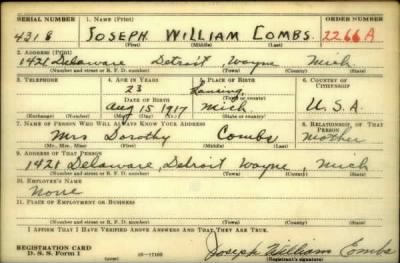 SERIAL NUMBER 1. NAME (Print) ORDER NUMBER
4218 JOSEPH WILLIAM COMBS. 2266A
(First) (Middle) (Last)
2. ADDRESS (Print)
1421 Delaware Detroit, Wayne Mich.
(Number and street or R. F. D. number) (Town) (County) (State)
3. TELEPHONE 4. AGE IN YEARS 5. PLACE OF BIRTH 6. COUNTRY OF CITIZENSHIP
23 Lansing,
DATE OF BIRTH (Town or county)
Aug 15 1917 Mich. U. S. A.
(Exchange) (Number) (Mo.) (Day) (Yr.) (State or country)
7. NAME OF PERSON WHO WILL ALWAYS KNOW YOUR ADDRESS 8. RELATIONSHIP OF THAT PERSON
Mrs Dorothy Combs Mother
(Mr., Mrs., Miss) (First) (Middle) (Last)
9. ADDRESS OF THAT PERSON
1421 Delaware, Detroit Wayne, Mich
(Number and street or R. F. D. number) (Town) (County) (State)
10. EMPLOYER'S NAME
None
11. PLACE OF EMPLOYMENT OR BUSINESS
(Number and street or R. F. D. number) (Town) (County) (State)
I AFFIRM THAT I HAVE VERIFIED ABOVE ANSWERS AND THAT THEY ARE TRUE.
REGISTRATION CARD
D. S. S. Form 1 Joseph William Combs
(Registrant's signature)